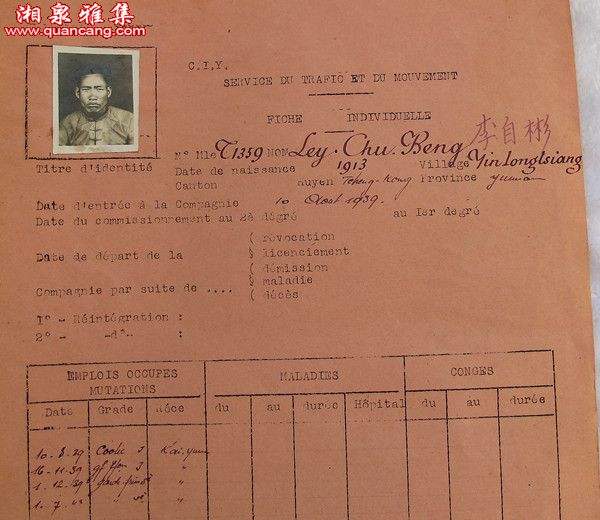 湘泉雅集
www.quancang.com
C.I.Y.
SERVICE DU TRAFIC ET DU MOUVEMENT
FICHE INDIVIDUELLE
N° Mle T1359 NOM Ley Chu Beng 李自彬
Titre d'identité
Date de naissance 1913 Village Yin Longtsiang
Canton Huyen Tcheng-Kong Province Yunnan
Date d'entrée à la Compagnie 10 Août 1939.
Date du commissionnement au 2è dégré au Ier degré
( révocation
Date de départ de la § licenciement
( démission
Compagnie par suite de .... § maladie
( décès
I° - Réintégration :
2° - -d°- :
EMPLOIS OCCUPES MALADIES CONGES
MUTATIONS
Date Grade Réce du au durée Hôpital du au durée
10-8-39 Coolie J Kai-yuen
16-11-39 J "
1-12-39 "
1-7- " "